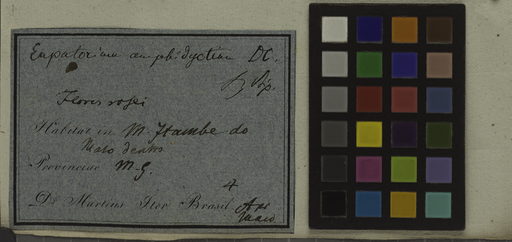 Eupatorium amphidyctium DC.
Flores rosei
Habitat in M. Itambe do
Mato dentro
Provinciae M.G.
Dr Martius Iter Brasil.